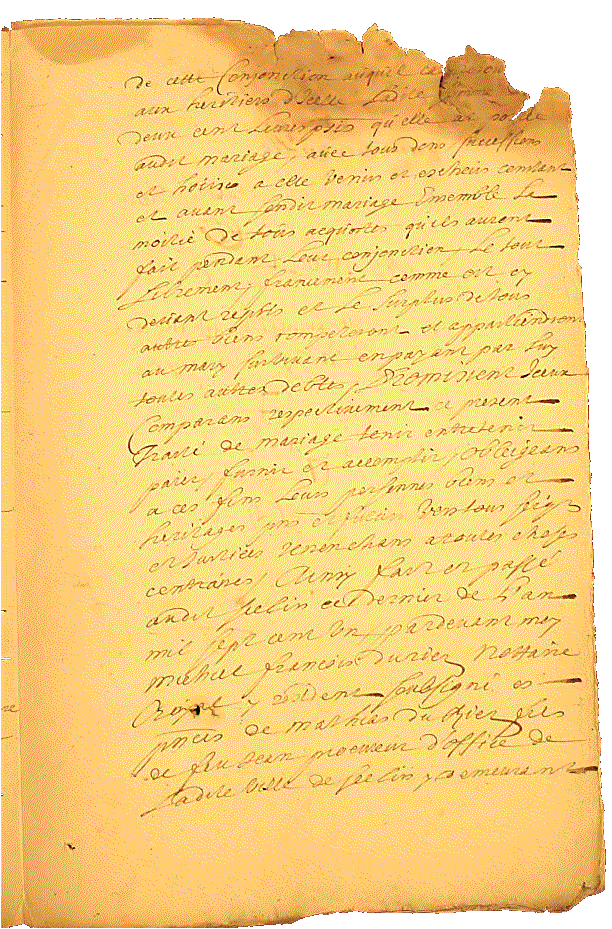 de cette Conjonction auquel cas
aux heritiers d'Icelle Ladite
deux cent Livres
audit mariage, avec tous dons successions
et hoirie a elle venus et escheus constant
et avant sondit mariage Ensemble La
moitié De tous acquestes qu'ils auront
fait pendant Leur conjonction, Le tout
Librement, franchement comme est cy
devant repris et Le Surplus de tous
autres biens competeront et appartiendront
au mary survivant en payant par Luy
toutes autres debtes, Promirent Iceux
Comparans respectivement ce present
Traité de mariage tenir entretenir
paier, furnir et accomplir, obligeans
a ces fins Leurs personnes biens et
heritages pns et futurs vers tous
et Justices renonchans a toutes choses
contraires, Ainsy fait et passé
audit Seclin ce dernier de L'an
mil sept cent un, pardevant moy
Michiel francois durier Nottaire
Royal y resident soubsigné es
pnces de mathias du Rier fils
de feu Jean procureur d'office de
Ladite Ville de Seclin y demeurant